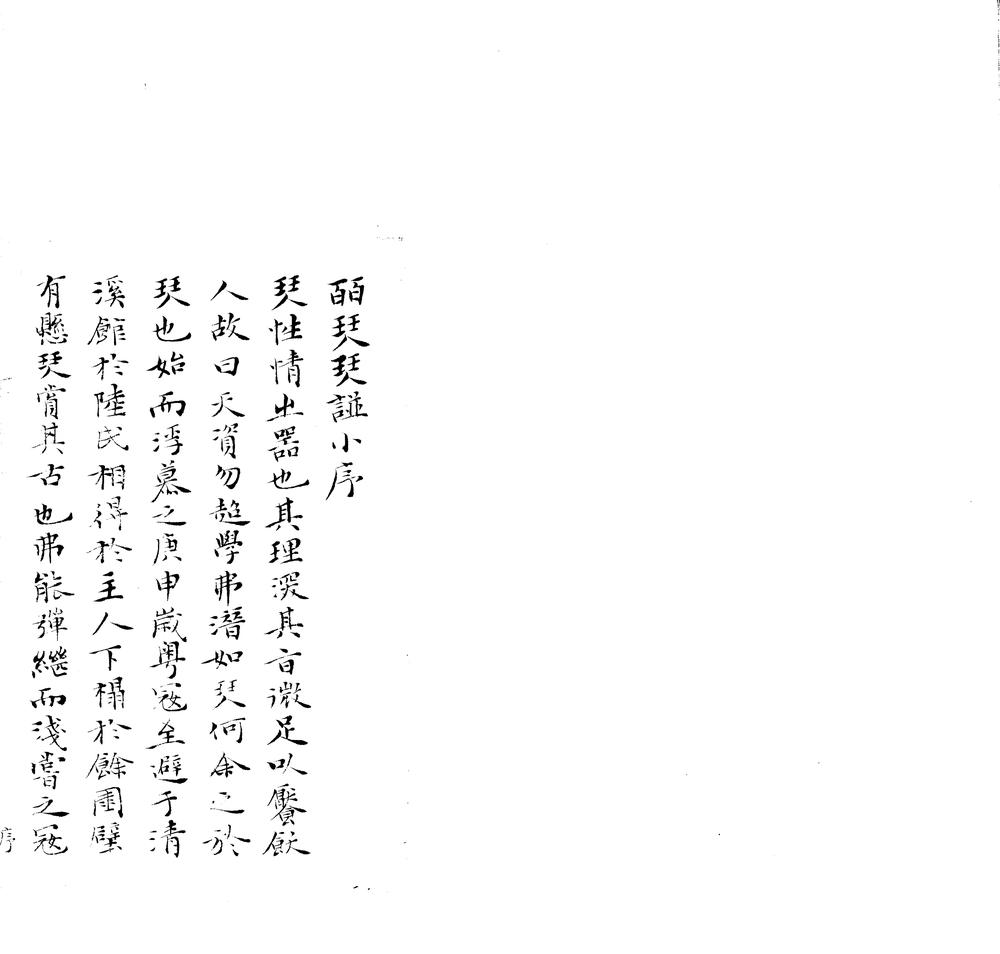 皕琹琹諡小序
琹性情㞢器也其理深其㫖微足以饜飫
人故曰天資勿趨學弗濳如琹何余之於
琹也始而浮慕之庚申歲粤冦至避于清
溪館於陸氏相得於主人下榻於餘圃壁
有懸琹賞其古也弗能彈繼而淺嘗之冦
序